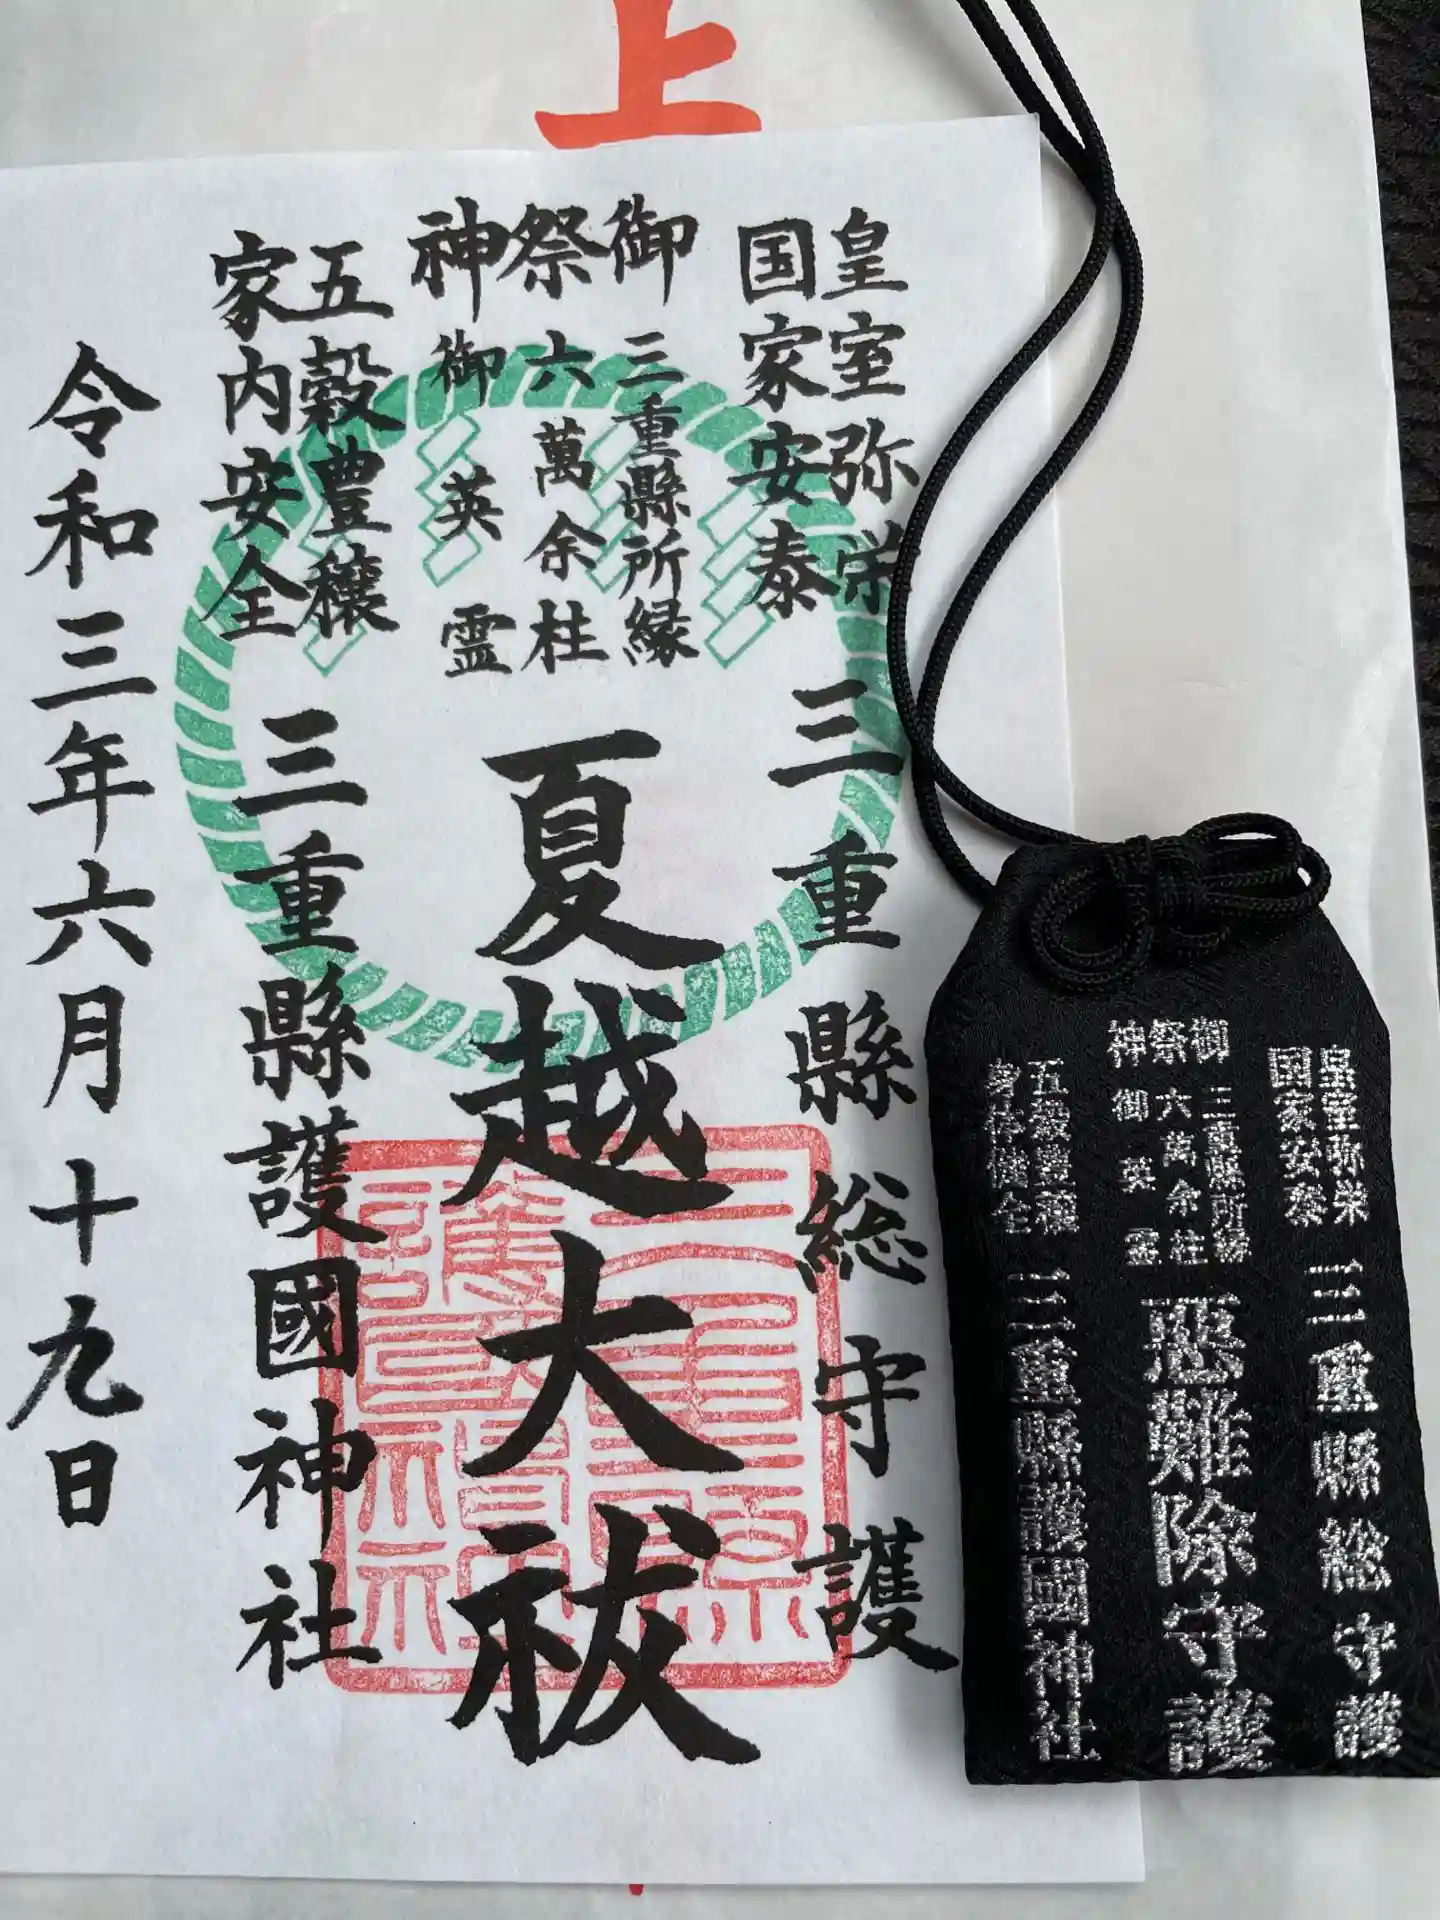 上
皇室弥栄
国家安泰
三重縣総守護
御祭神
三重縣所縁
六萬余柱
御英霊
夏越大祓
五穀豊穣
家内安全
三重縣護國神社
令和三年六月十九日
皇室弥栄
国家安泰
三重縣総守護
御祭神
三重縣所縁
六萬余柱
御英霊
悪難除守護
五穀豊穣
身体健全
三重縣護國神社